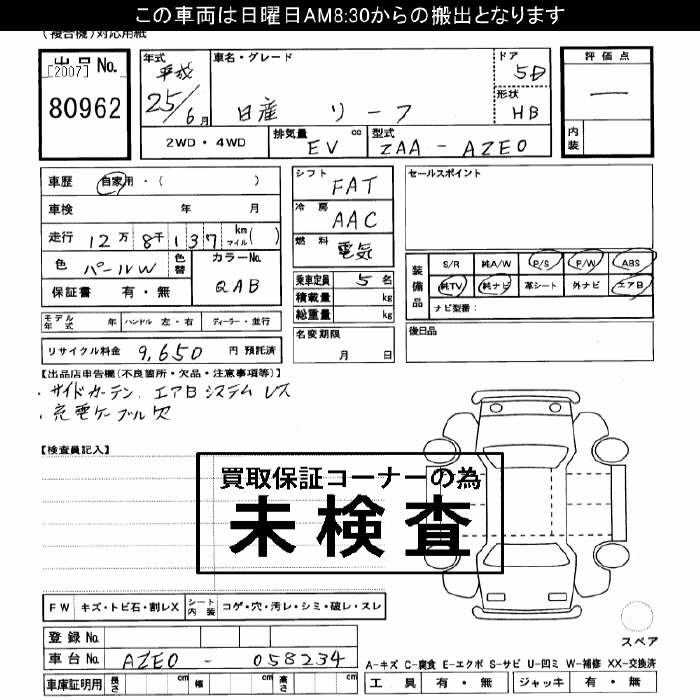 この車両は日曜日AM8:30からの搬出となります
(複合機)対応用紙
出品No. [2007] 80962
年式 平成 25/6月
車名・グレード 日産 リーフ
ドア 5D
形状 HB
評価点 —
内装
2WD・4WD 排気量 EV cc 型式 ZAA-AZE0
車歴 自家用・( )
車検 年 月
走行 12万8千137 km マイル( )
色 パールW 色替 カラーNo. QAB
保証書 有・無
シフト FAT
冷房 AAC
燃料 電気
乗車定員 5名
積載量 kg
総重量 kg
セールスポイント
装備品 S/R 純A/W P/S P/W ABS
純TV 純ナビ 革シート 外ナビ エアB
ナビ型番:
モデル年式 年 ハンドル 左・右 ディーラー・並行
名変期限 月 日
後日品
リサイクル料金 9,650 円 預託済
【出品店申告欄(不良箇所・欠品・注意事項等)】
・サイドカーテン、エアBシステムレス
・充電ケーブル欠
【検査員記入】
買取保証コーナーの為
未検査
FW キズ・トビ石・割レX シート内装 コゲ・穴・汚レ・シミ・破レ・スレ
スペア
登録No.
車台No. AZE0-058234
A-キズ C-腐食 E-エクボ S-サビ U-凹ミ W-補修 XX-交換済
車庫証明用 長さ cm 幅 cm 高さ cm
工具 有・無 ジャッキ 有・無